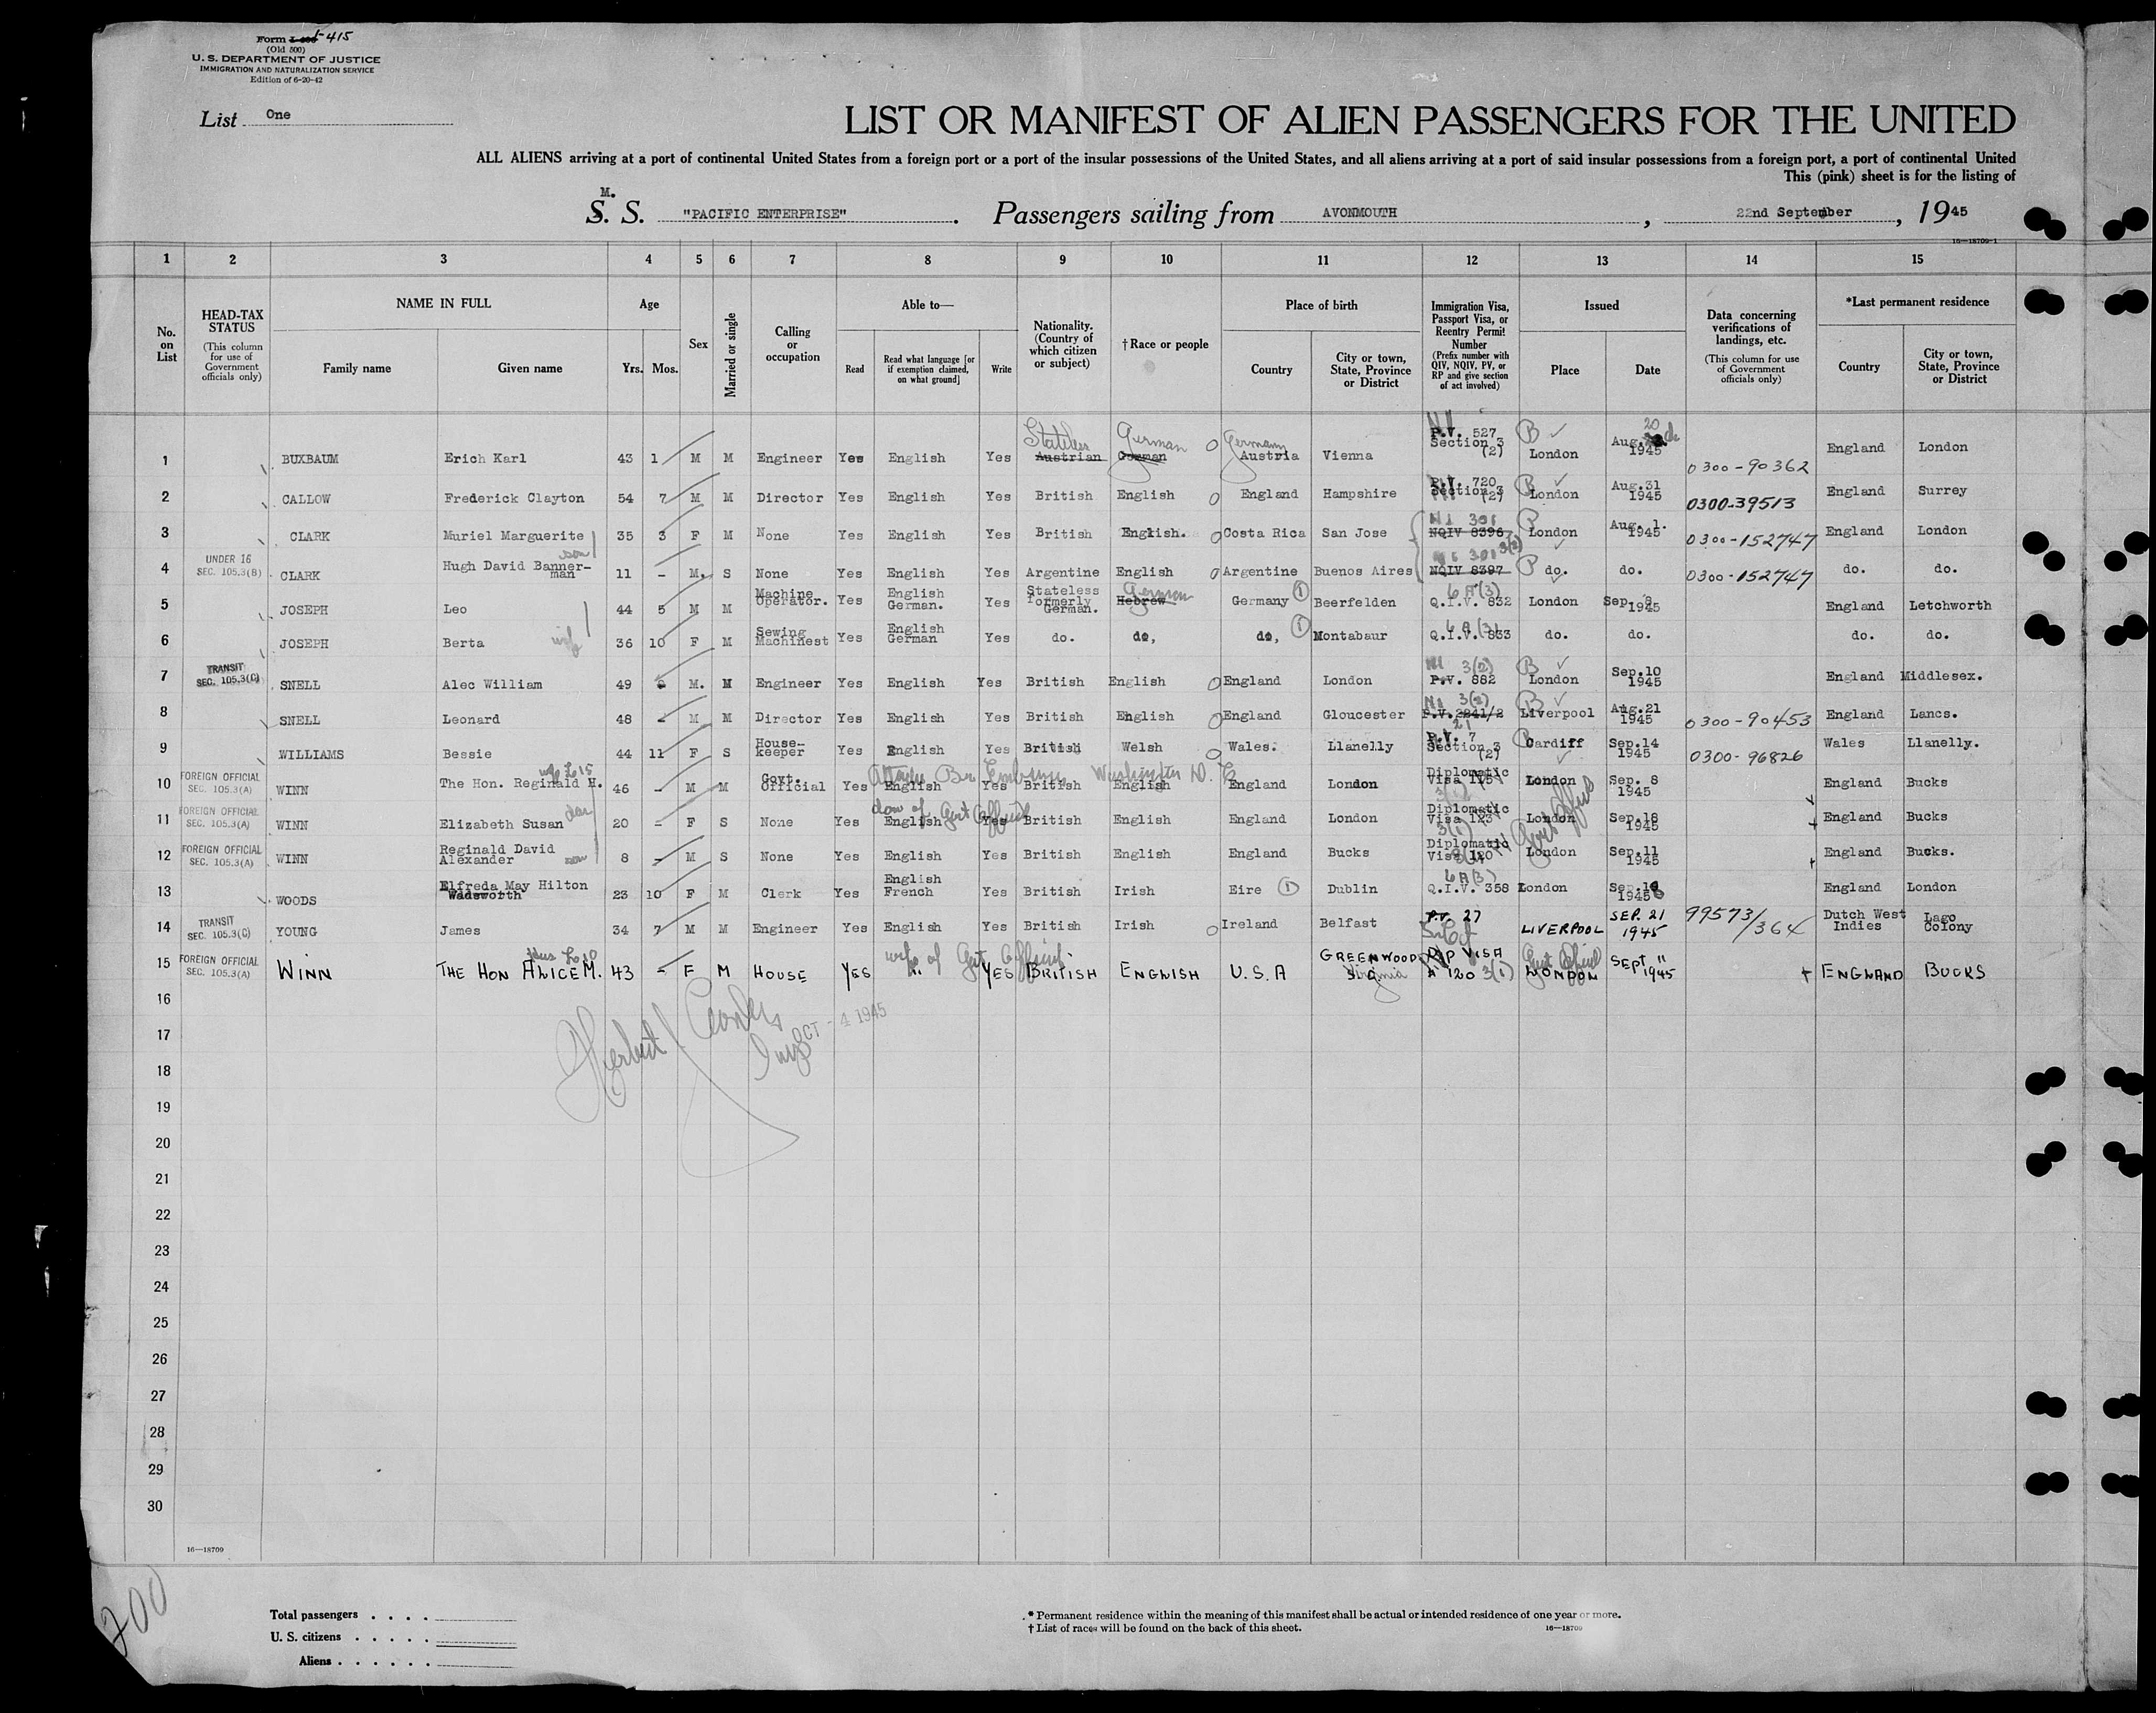 Form I-415
(Old 500)
U. S. DEPARTMENT OF JUSTICE
IMMIGRATION AND NATURALIZATION SERVICE
Edition of 6-20-42
List One
LIST OR MANIFEST OF ALIEN PASSENGERS FOR THE UNITED
ALL ALIENS arriving at a port of continental United States from a foreign port or a port of the insular possessions of the United States, and all aliens arriving at a port of said insular possessions from a foreign port, a port of continental United
This (pink) sheet is for the listing of
M.
S. S. "PACIFIC ENTERPRISE". Passengers sailing from AVONMOUTH, 22nd September, 1945
16—18709-1
1 2 3 4 5 6 7 8 9 10 11 12 13 14 15
No. on List
HEAD-TAX STATUS (This column for use of Government officials only)
NAME IN FULL Family name Given name
Age Yrs. Mos.
Sex
Married or single
Calling or occupation
Able to— Read Read what language [or if exemption claimed, on what ground] Write
Nationality. (Country of which citizen or subject)
†Race or people
Place of birth Country City or town, State, Province or District
Immigration Visa, Passport Visa, or Reentry Permit Number (Prefix number with QIV, NQIV, PV, or RP and give section of act involved)
Issued Place Date
Data concerning verifications of landings, etc. (This column for use of Government officials only)
*Last permanent residence Country City or town, State, Province or District
1 BUXBAUM Erich Karl 43 1 M M Engineer Yes English Yes Stateless Austrian German German Germany Austria Vienna P.V. 527 Section 3 (2) London Aug. 20 1945 0300-90362 England London
2 CALLOW Frederick Clayton 54 7 M M Director Yes English Yes British English England Hampshire P.V. 720 Section 3 (2) London Aug.31 1945 0300-39513 England Surrey
3 CLARK Muriel Marguerite 35 3 F M None Yes English Yes British English. Costa Rica San Jose NI 301 NQIV 8396 London Aug. 1. 1945 0300-152747 England London
4 UNDER 16 SEC. 105.3(B) CLARK Hugh David Bannerman son 11 - M. S None Yes English Yes Argentine English Argentine Buenos Aires 301 3(2) NQIV 8397 do. do. 0300-152747 do. do.
5 JOSEPH Leo 44 5 M M Machine Operator. Yes English German. Yes Stateless formerly German. German Hebrew Germany Beerfelden 6A(3) Q.I.V. 832 London Sep. 1945 England Letchworth
6 JOSEPH Berta wife 36 10 F M Sewing Machinest Yes English German Yes do. do, do, Montabaur 6A(3) Q.I.V. 833 do. do. do. do.
7 TRANSIT SEC. 105.3(C) SNELL Alec William 49 M. M Engineer Yes English Yes British English England London NI 3(2) P.V. 882 London Sep.10 1945 England Middlesex.
8 SNELL Leonard 48 - M M Director Yes English Yes British English England Gloucester 3(2) P.V.2241/2 Liverpool Aug.21 1945 0300-90453 England Lancs.
9 WILLIAMS Bessie 44 11 F S House-keeper Yes English Yes British Welsh Wales. Llanelly P.V. 7 Section 3 (2) Cardiff Sep.14 1945 0300-96826 Wales Llanelly.
10 FOREIGN OFFICIAL SEC. 105.3(A) WINN The Hon. Reginald H. wife L 15 46 - M M Govt. Official Yes Attache Br. Embassy Washington D.C. English Yes British English England London Diplomatic Visa 115 London Sep. 8 1945 England Bucks
11 FOREIGN OFFICIAL SEC. 105.3(A) WINN Elizabeth Susan dau 20 - F S None Yes dau of Govt Official English Yes British English England London Diplomatic Visa 123 3(1) London Sep.18 1945 England Bucks
12 FOREIGN OFFICIAL SEC. 105.3(A) WINN Reginald David Alexander son 8 - M S None Yes English Yes British English England Bucks Diplomatic Visa 120 London Sep.11 1945 England Bucks.
13 WOODS Elfreda May Hilton Wadsworth 23 10 F M Clerk Yes English French Yes British Irish Eire Dublin 6A(3) Q.I.V. 358 London Sep.18 1945 England London
14 TRANSIT SEC. 105.3(C) YOUNG James 34 7 M M Engineer Yes English Yes British Irish Ireland Belfast P.V. 27 LIVERPOOL SEP. 21 1945 99573/364 Dutch West Indies Lago Colony
15 FOREIGN OFFICIAL SEC. 105.3(A) WINN THE HON ALICE M. 43 - F M HOUSE YES wife of Govt Official " YES BRITISH ENGLISH U.S.A GREENWOOD Virginia DIP VISA A 120 3(1) Govt Official LONDON SEPT. 11 1945 ENGLAND BUCKS
16
Herbert
Insp
OCT - 4 1945
17
18
19
20
21
22
23
24
25
26
27
28
29
30
16—18709
200
Total passengers . . . .
U. S. citizens . . . . .
Aliens . . . . . .
* Permanent residence within the meaning of this manifest shall be actual or intended residence of one year or more.
† List of races will be found on the back of this sheet.
16—18709